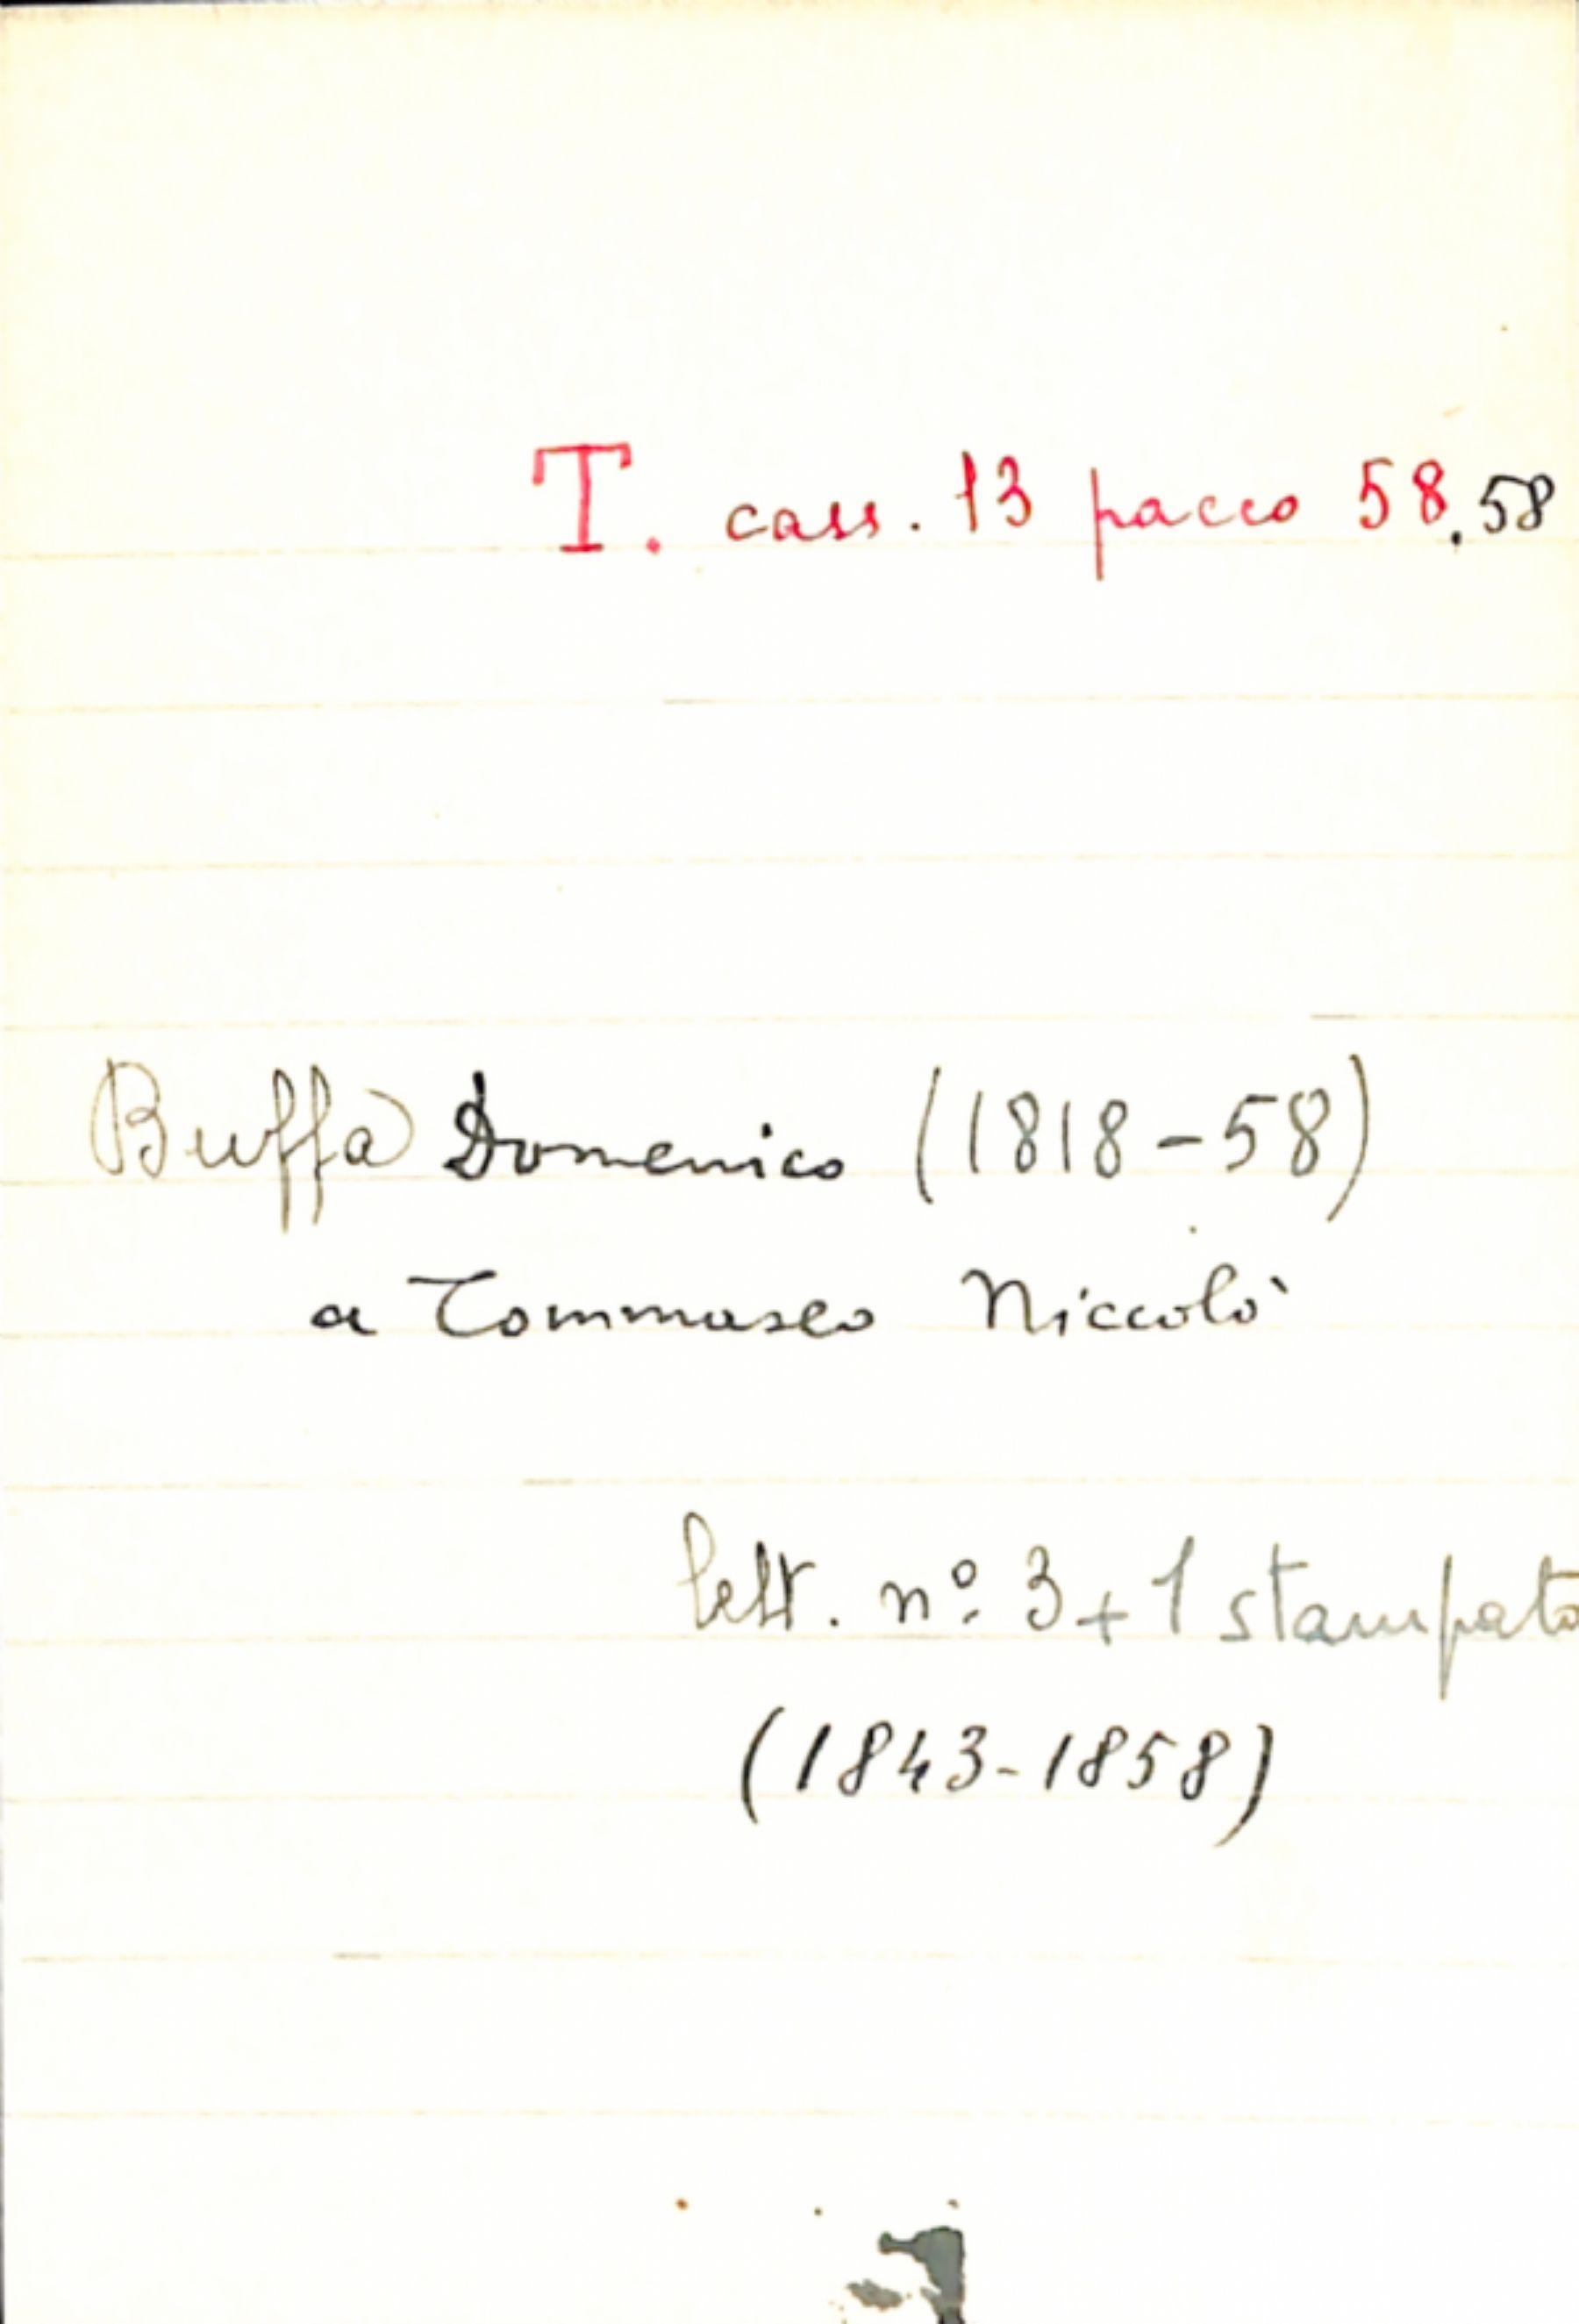 T. cass. 13 pacco 58.58
Buffa Domenico (1818-58)
a Tommaseo Niccolò
lett. nº 3 + 1 stampato
(1843-1858)